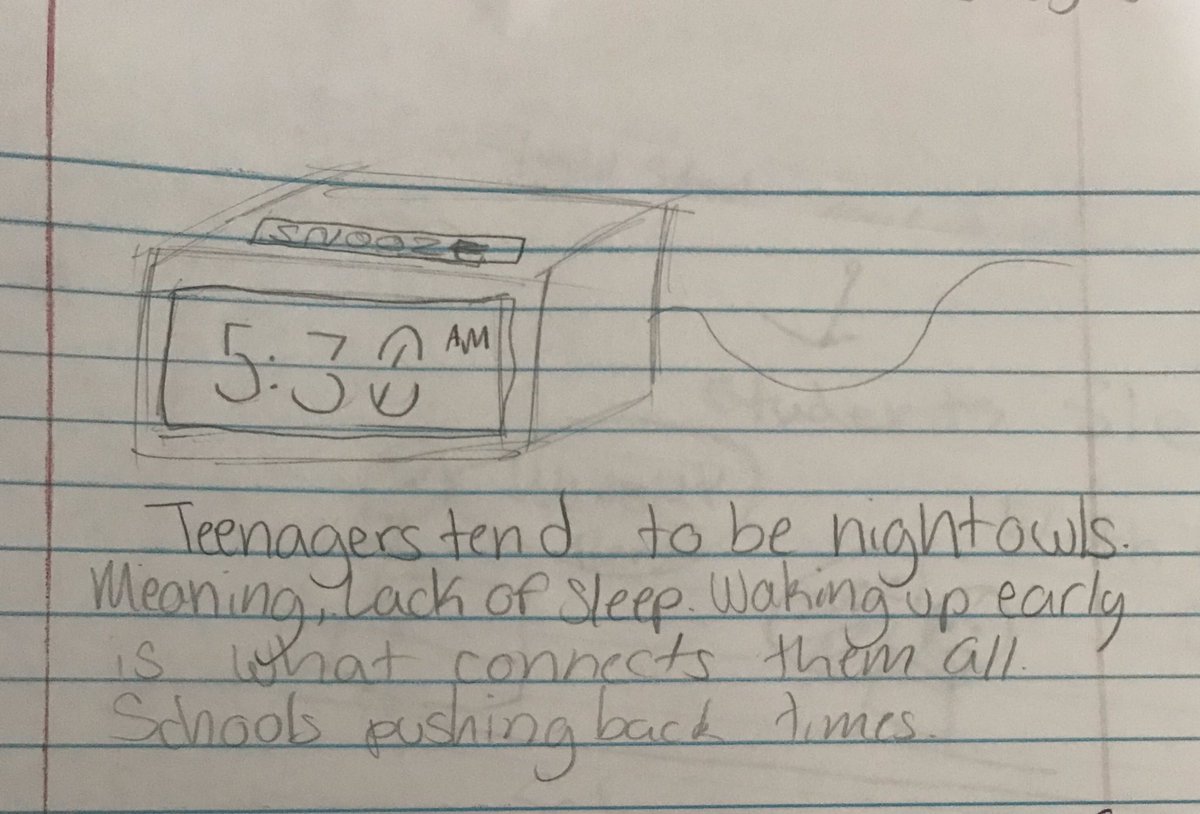 SNOOZE
5:30 AM
Teenagers tend to be night owls.
Meaning, Lack of sleep. Waking up early
is what connects them all.
Schools pushing back times.